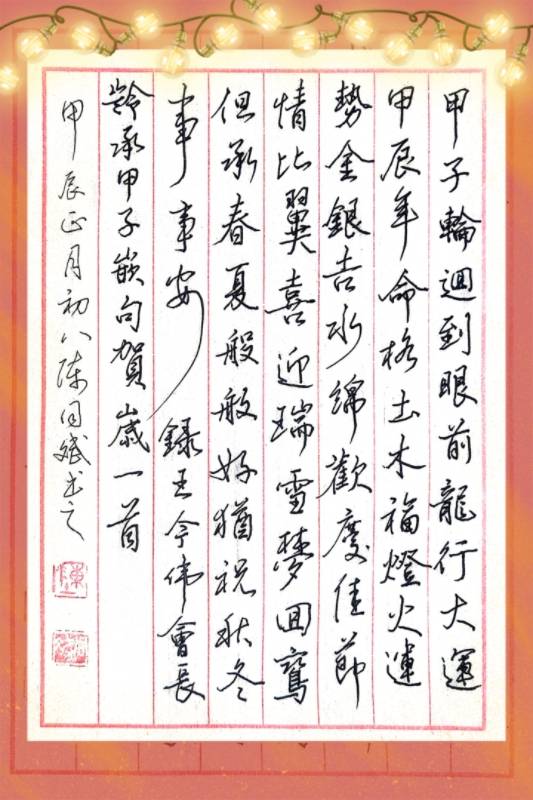 甲子輪迴到眼前龍行大運
甲辰年命格土木福燈火運
勢金銀吉水綿歡慶佳節
情比翼喜迎瑞雪夢回鸞
但承春夏般般好猶祝秋冬
事事安 錄王今偉會長
齡承甲子嵌句賀歲一首
甲辰正月初八陳同斌書之